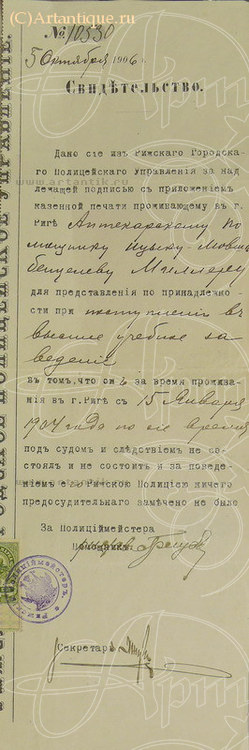 © Artantique.ru
№ 10530
5 Октября 1906 г.
Свидѣтельство.
Дано сіе изъ Рижскаго Городска-
го Полицейскаго Управленія за над
лежащей подписью съ приложеніемъ
казенной печати проживающему въ г.
Ригѣ Аптекарскому по
мощнику Ицыку-Мовшѣ
Миллеру
для представленія по принадлежно
сти при поступленіи въ
высшіе учебные за
веденія
въ томъ, что онъ за время прожива
нія въ г. Ригѣ съ 15 Января
1904 года по сіе время
подъ судомъ и слѣдствіемъ не со-
стоялъ и не состоитъ и за поведе-
ніемъ его Рижскою Полиціею ничего
предосудительнаго замѣчено не было
За Полиціймейстера
Помощникъ
Секретарь